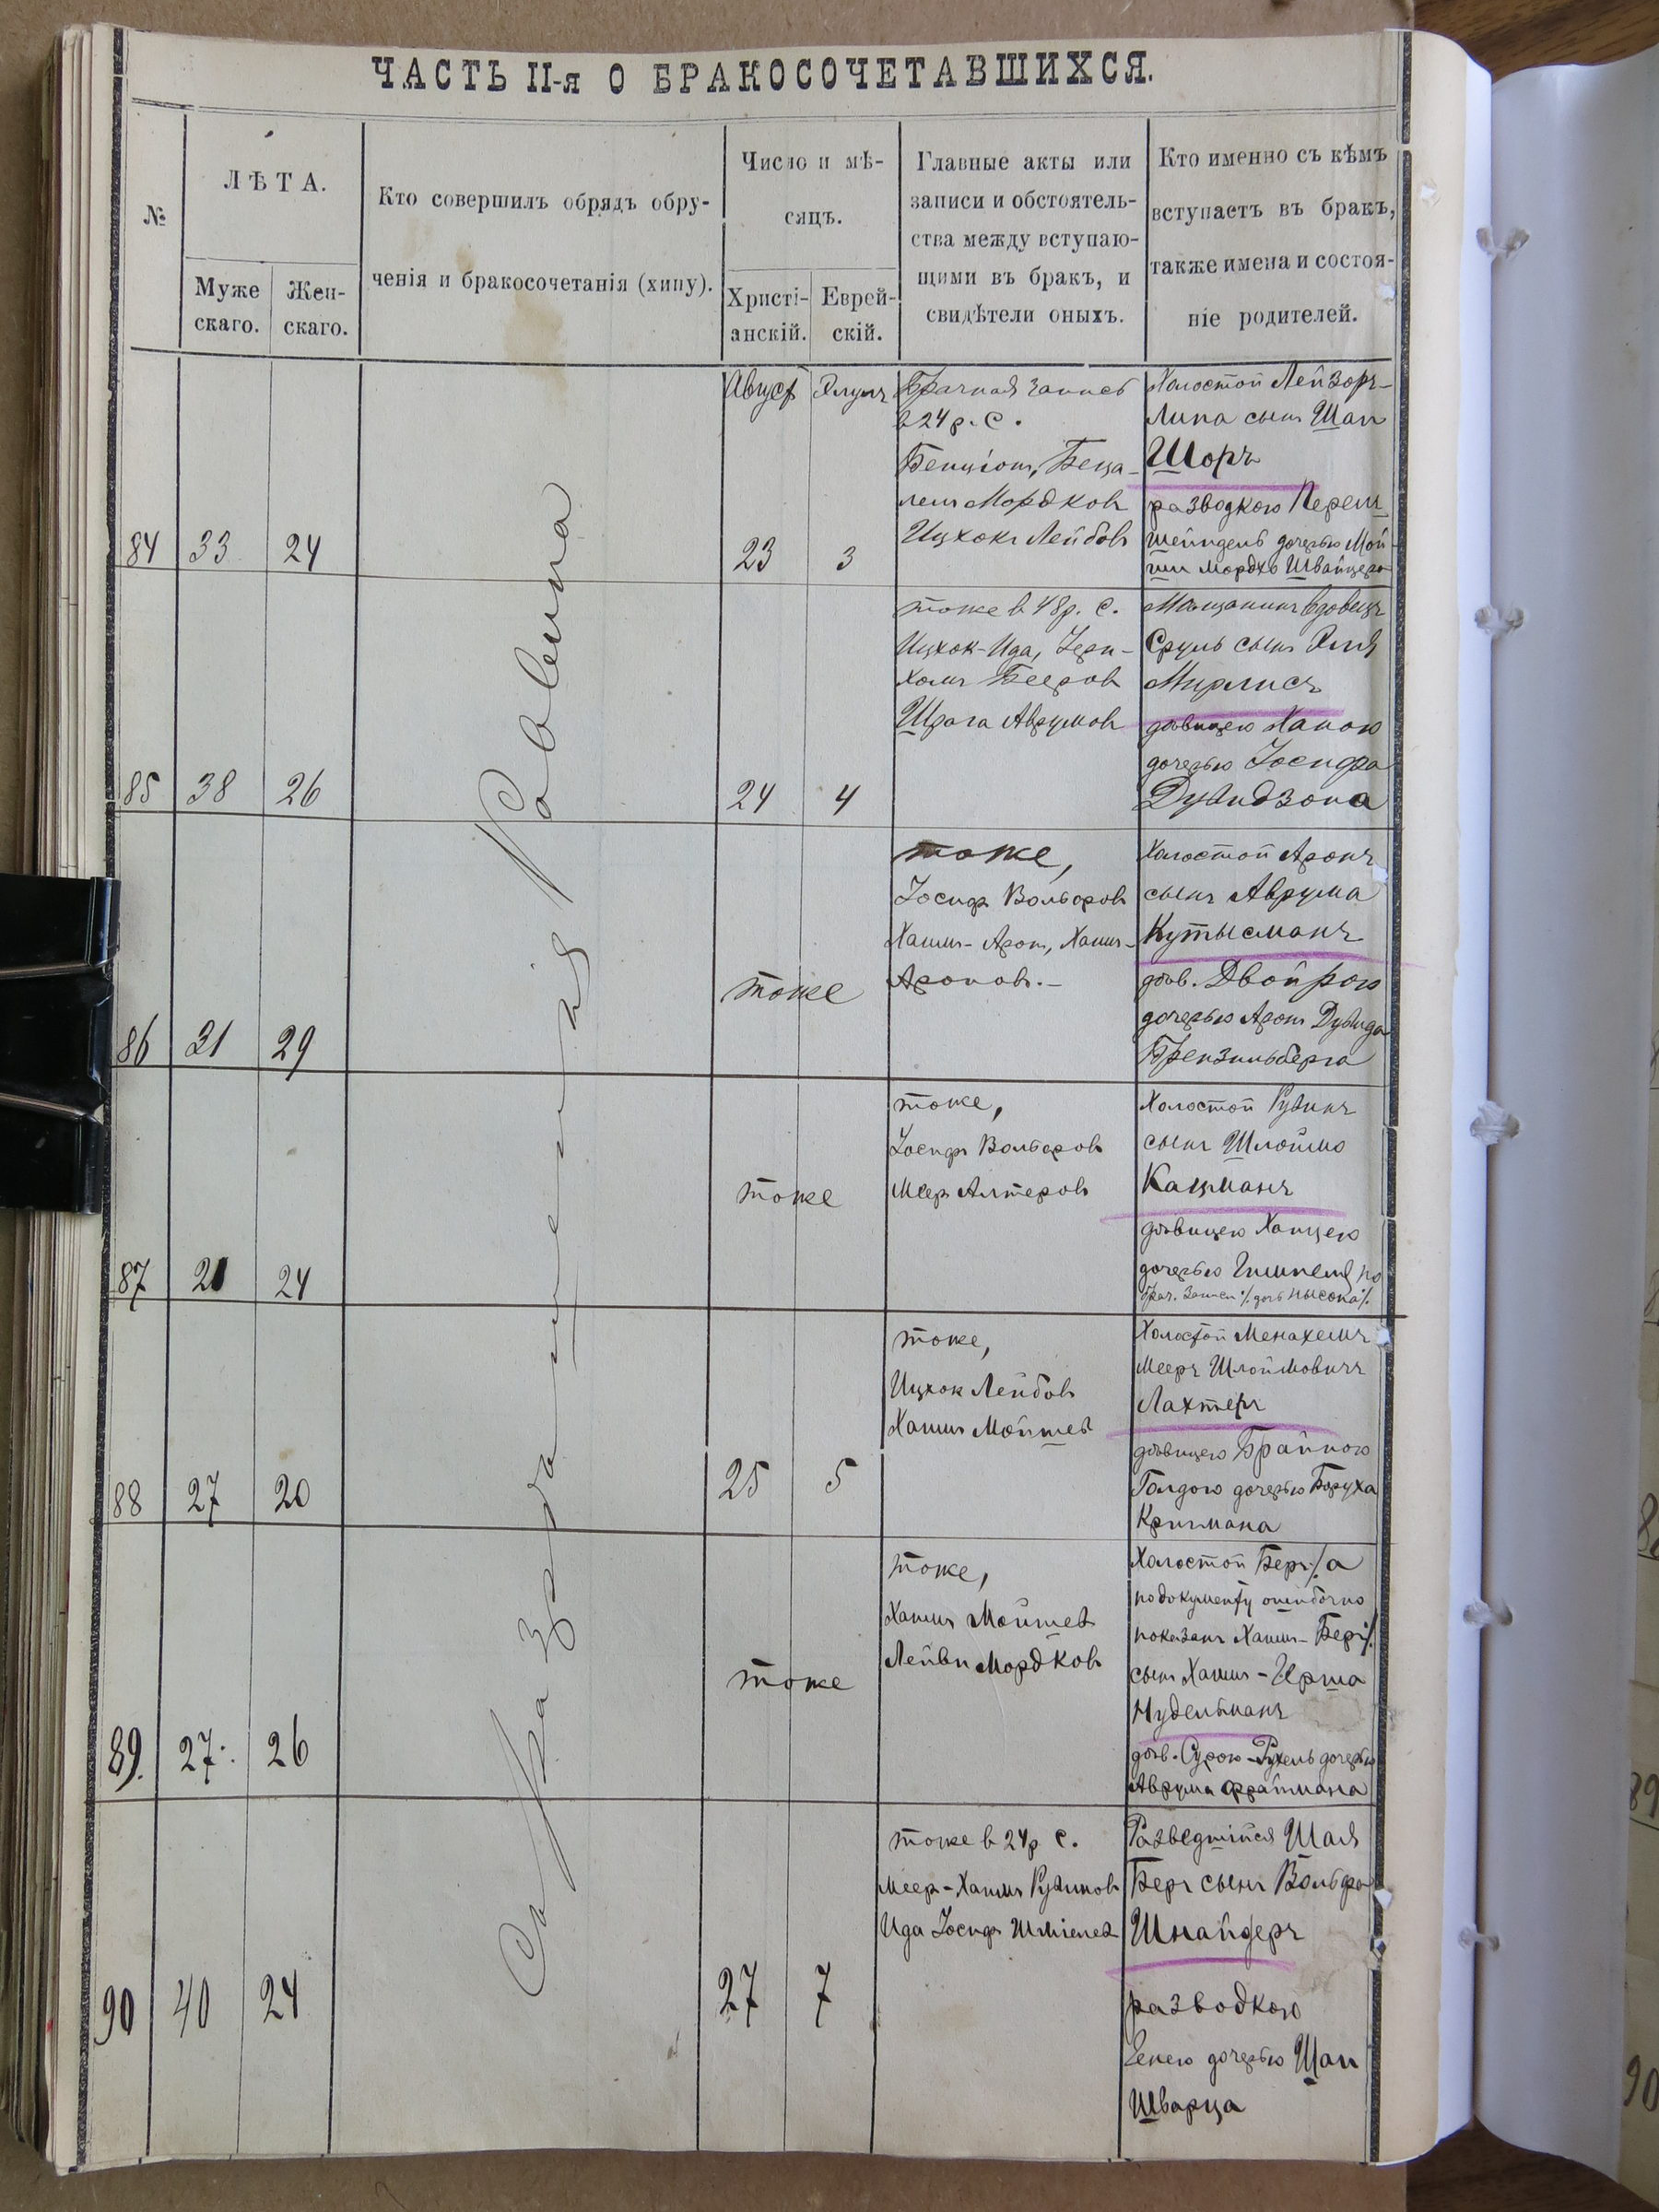 ЧАСТЬ II-я О БРАКОСОЧЕТАВШИХСЯ.
№
ЛѢТА.
Муже
скаго.
Жен-
скаго.
Кто совершилъ обрядъ обру-
ченія и бракосочетанія (хипу).
Число и мѣ-
сяцъ.
Христі-
анскій.
Еврей-
скій.
Главные акты или
записи и обстоятель-
ства между вступаю-
щими въ бракъ, и
свидѣтели оныхъ.
Кто именно съ кѣмъ
вступаетъ въ бракъ,
также имена и состоя-
ніе родителей.
Съ разрѣшенія Раввина
84 33 24
Август Элулъ
23 3
Брачная запись
в 24 р. С.
Бенціонъ, Беца-
лелъ Мордков
Ицхокъ Лейбовъ
Холостой Лейзоръ-
Липа сынъ Шаи
Шоръ
разводкою Перелъ
Шейндель дочерью Мой
ши Мордхо Швайцера
85 38 26
24 4
тоже в 48 р. С.
Ицхок-Ида,
Бееров
Шрага Аврумов
Мещанинъ вдовецъ
Сруль сынъ Эля
Мирлисъ
дѣвицею Ханою
дочерью Іосифа
Дувидзона
86 21 29
тоже
тоже,
Іосифъ Вольфовъ
Хаимъ-Аронъ, Хаимъ-
Ароновъ.-
Холостой Аронъ
сынъ Аврума
Кутысманъ
дѣв. Двойрою
дочерью Аронъ Дувида
Брензильберга
87 21 24
тоже
тоже,
Іосифъ Вольфовъ
Меер Алтеровъ
Холостой Рувинъ
сынъ Шлоймо
Кацманъ
дѣвицею Ханцею
дочерью Гимпеля по
88 27 20
25 5
тоже,
Ицхок Лейбовъ
Хаимъ Мойшев
Холостой Менахемъ
Мееръ Шлоймовичъ
Лахтеръ
дѣвицею Брайною
Голдою дочерью Боруха
Кригмана
89. 27. 26
тоже
тоже,
Хаимъ Мойшев
Лейви Мордков
Холостой Беръ ./. а
по документу ошибочно
показанъ Хаимъ-Беръ ./.
сынъ Хаимъ-Ирша
Нудельманъ
дѣв. Сурою-Рухель дочерью
Аврума Фратмана
90 40 24
27 7
тоже в 24 р С.
Меер-Хаимъ Рувинов
Ида Іосиф Шміелев
Разведшійся Шая
Беръ сынъ Вольфа
Шнайдеръ
разводкою
Генею дочерью Шаи
Шварца